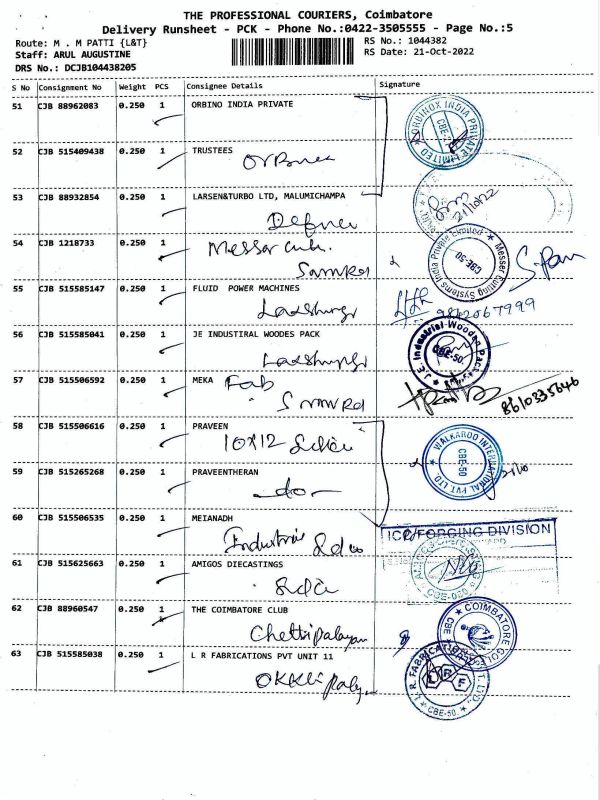 THE PROFESSIONAL COURIERS, Coimbatore
Delivery Runsheet - PCK - Phone No.:0422-3505555 - Page No.:5
Route: M . M PATTI {L&T}
RS No.: 1044382
Staff: ARUL AUGUSTINE
RS Date: 21-Oct-2022
DRS No.: DCJB104438205
S No Consignment No Weight PCS Consignee Details Signature
51 CJB 88962083 0.250 1 ORBINO INDIA PRIVATE
ORBINOX INDIA PRIVATE LIMITED
52 CJB 515409438 0.250 1 TRUSTEES
53 CJB 88932854 0.250 1 LARSEN&TURBO LTD, MALUMICHAMPA
21/10/22
54 CJB 1218733 0.250 1
Messer
Messer Cutting Systems India Private Limited CBE-50
55 CJB 515585147 0.250 1 FLUID POWER MACHINES
56 CJB 515585041 0.250 1 JE INDUSTIRAL WOODES PACK
J.E. Industrial Wooden Packing CBE-50.
57 CJB 515506592 0.250 1 MEKA Fab
8610335646
58 CJB 515506616 0.250 1 PRAVEEN
10x12 Sidco
WALKAROO INTERNATIONAL PVT LTD. CBE-50
59 CJB 515265268 0.250 1 PRAVEENTHERAN
-do-
60 CJB 515506535 0.250 1 MEIANADH
Industries Sidco
ICD/FORGING DIVISION
61 CJB 515625663 0.250 1 AMIGOS DIECASTINGS
Sidco
62 CJB 88960547 0.250 1 THE COIMBATORE CLUB
Chettipalayam
COIMBATORE GOLF CBE
63 CJB 515585038 0.250 1 L R FABRICATIONS PVT UNIT 11
L. R. FABRICATIONS PVT. LTD., LRF CBE-50.